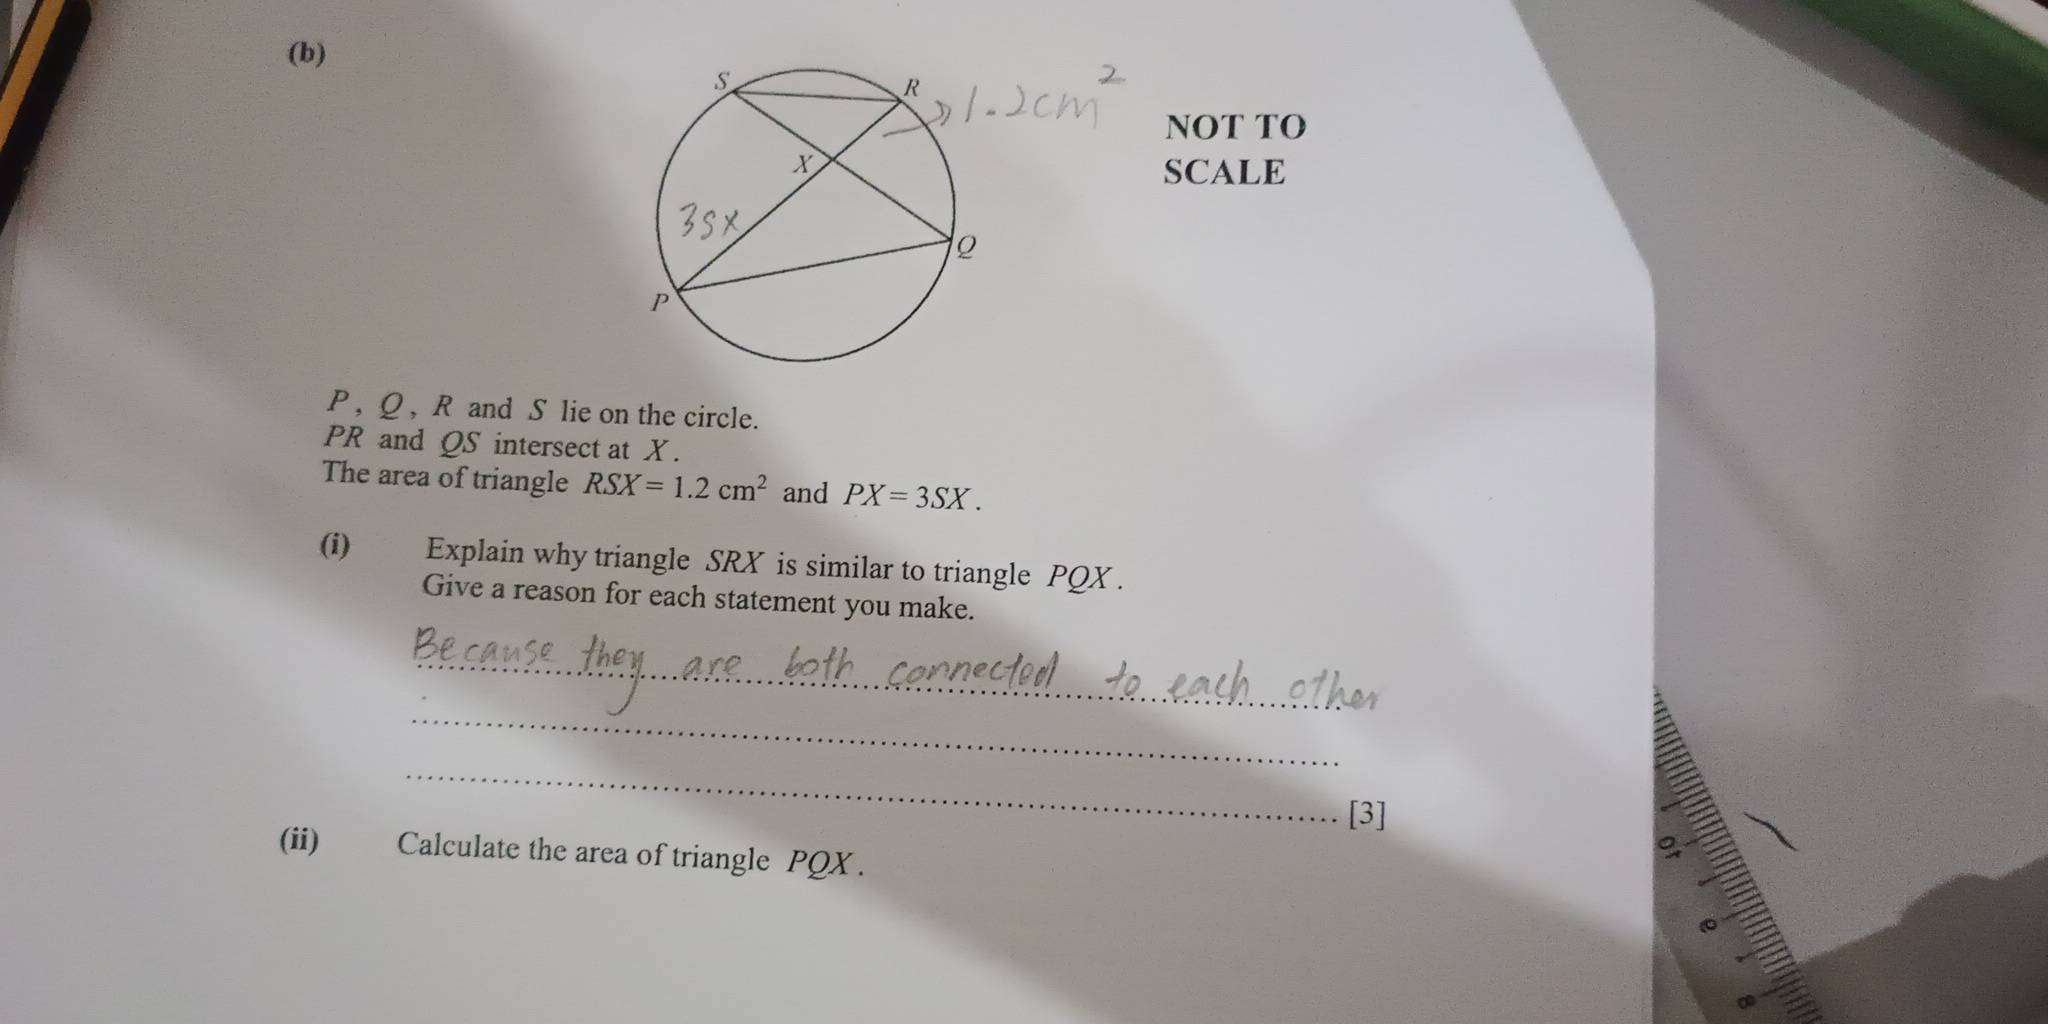 (b)
S
R
1.2cm²
NOT TO
SCALE
X
3SX
Q
P
P, Q, R and S lie on the circle.
PR and QS intersect at X.
The area of triangle RSX = 1.2 cm² and PX = 3SX.
(i) Explain why triangle SRX is similar to triangle PQX.
Give a reason for each statement you make.
Because they are both connected to each other
[3]
(ii) Calculate the area of triangle PQX.
10
9
8